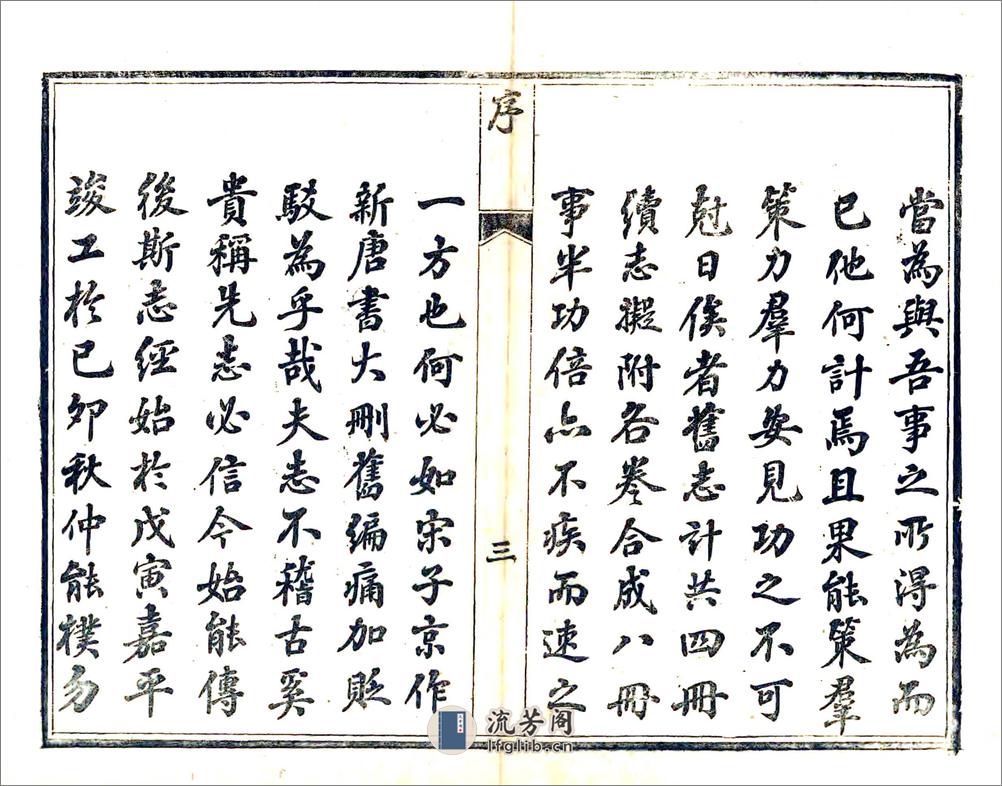 當為與吾事之所得為而
已他何計焉且果能策羣
策力羣力安見功之不可
尅日俟者舊志計共四冊
續志擬附各卷合成八冊
事半功倍亦不疾而速之
序
三
一方也何必如宋子京作
新唐書大刪舊編痛加貶
駁為乎哉夫志不稽古奚
貴稱先志必信今始能傳
後斯志經始於戊寅嘉平
竣工於己卯秋仲能樸勿
流芳阁
lfglib.cn